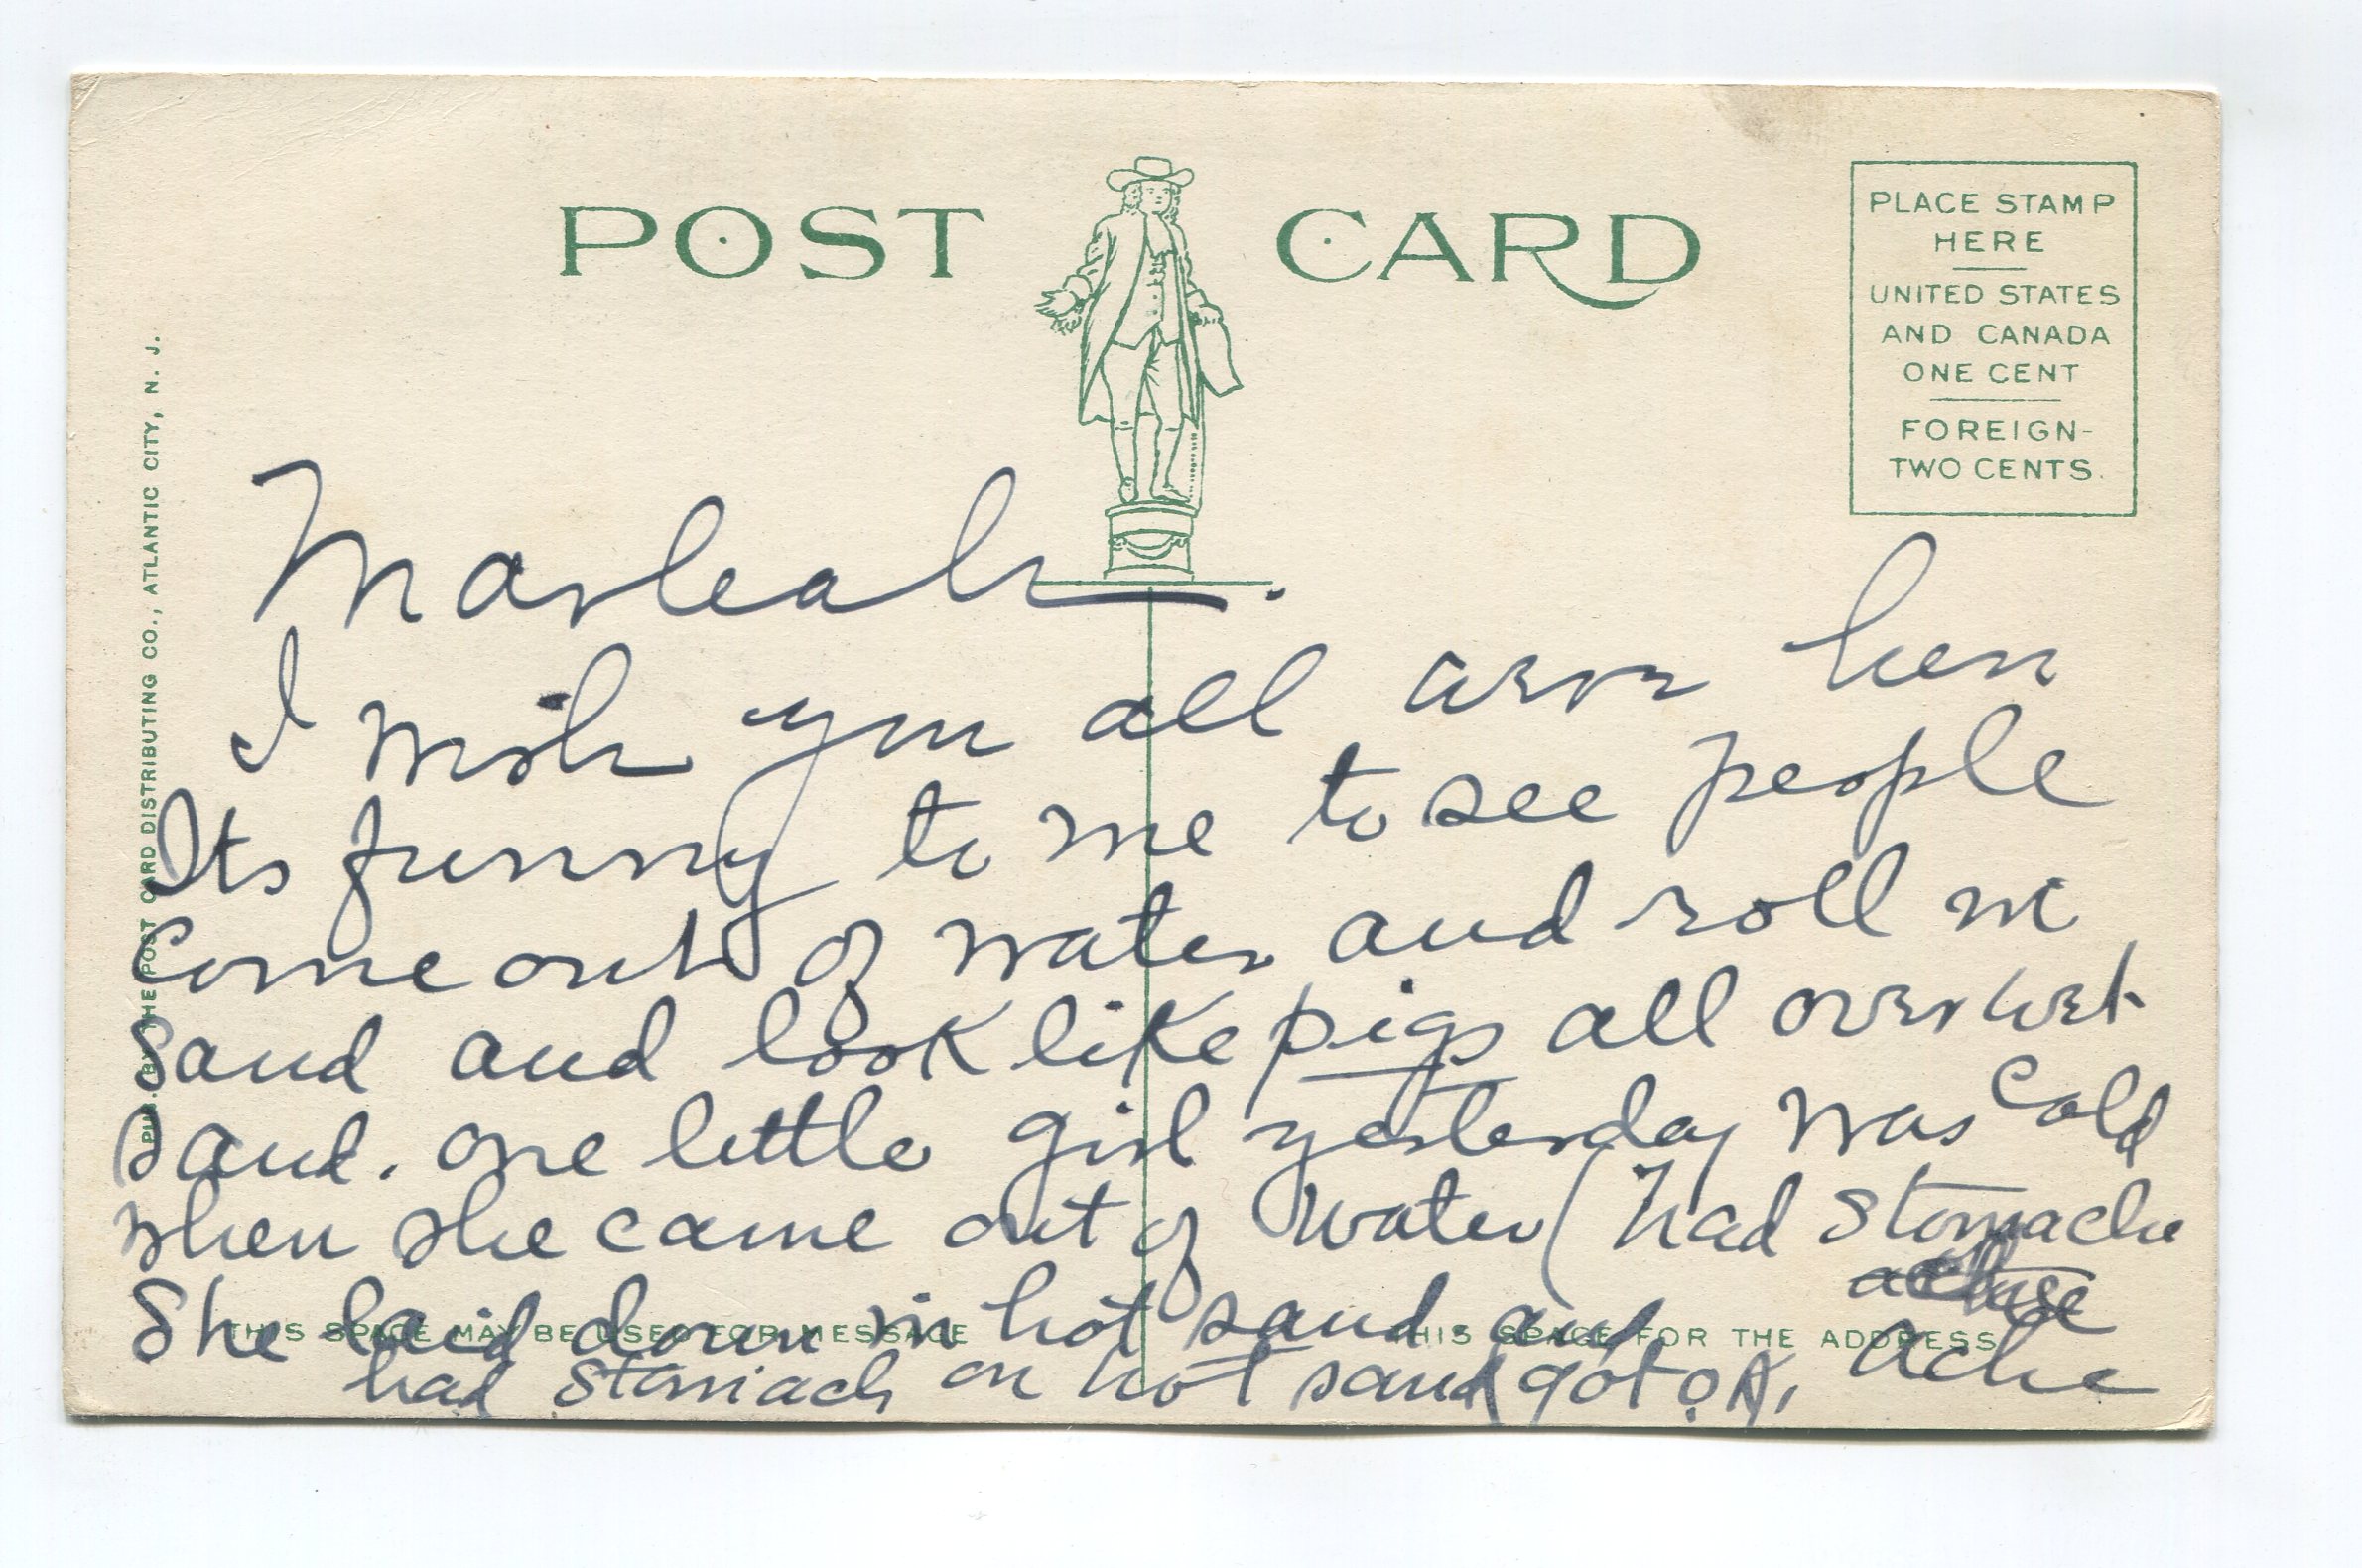 POST CARD
PLACE STAMP
HERE
UNITED STATES
AND CANADA
ONE CENT
FOREIGN-
TWO CENTS.
PUB. BY THE POST CARD DISTRIBUTING CO., ATLANTIC CITY, N. J.
Marleah.
I wish you all were here
Its funny to me to see people
Come out of water and roll in
Sand and look like pigs all over wet
Sand. one little girl yesterday was Cold
when she came out of water (had Stomache
She laid down in hot sand and
ache
had Stomach on hot sand got OK,
THIS SPACE MAY BE USED FOR MESSAGE
THIS SPACE FOR THE ADDRESS